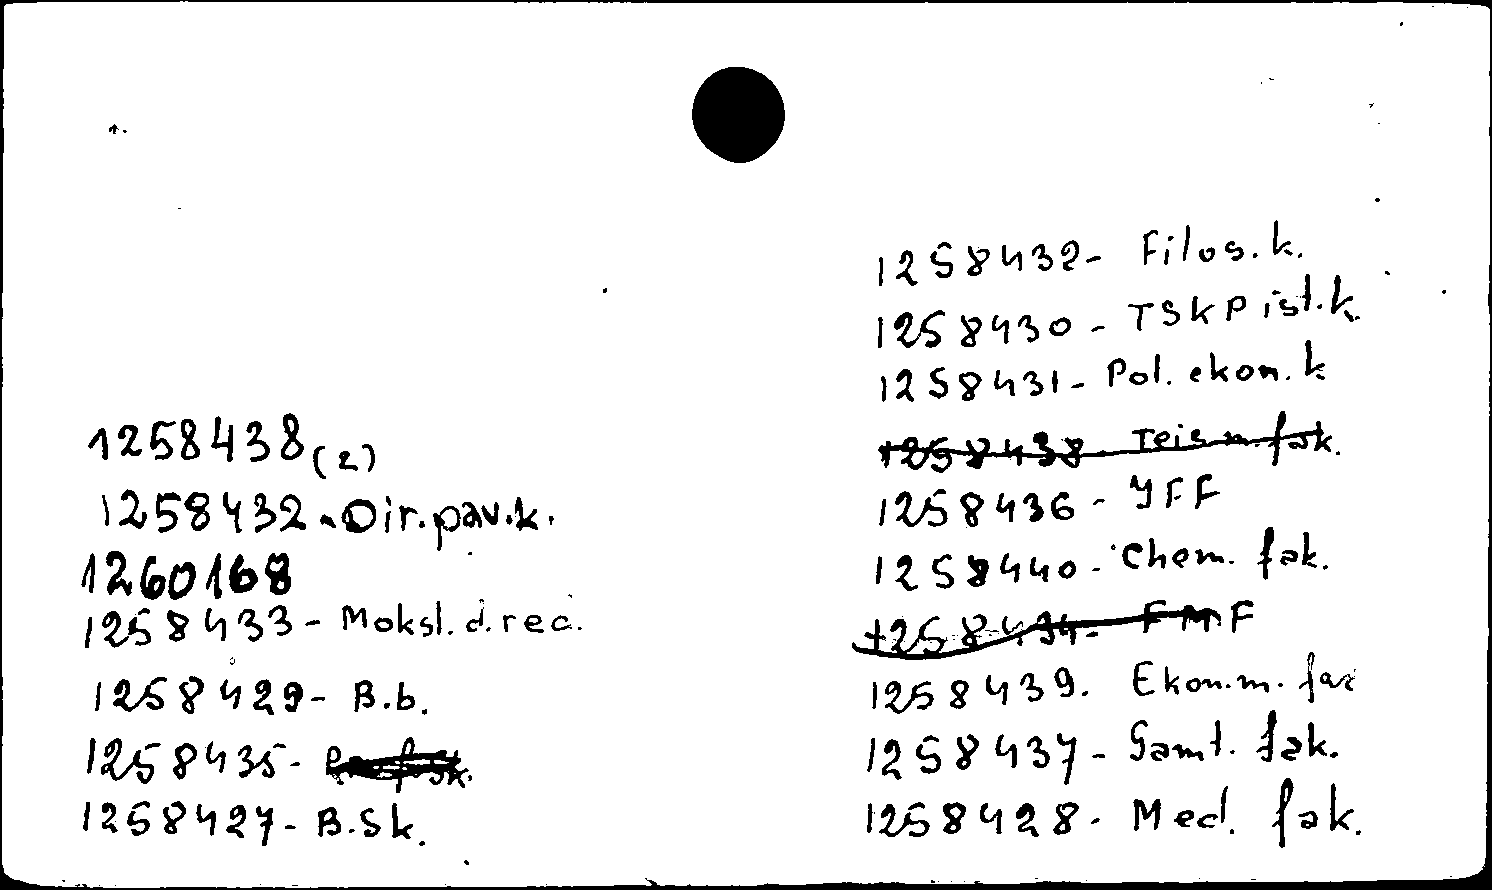 1258438(2)
1258432-Dir.pav.k.
1260168
1258433- Moksl.d.rec.
1258429- B.b.
1258435-
1258427- B.Sk.
1258432- Filos.k.
1258430- TSKP ist.k.
1258431- Pol. ekon. k
1258438- Teis m. fak.
1258436- IFF
1258440- Chem. fak.
1258434- FMF
1258439. Ekon.m. fak
1258437- Gamt. fak.
1258428- Med. fak.